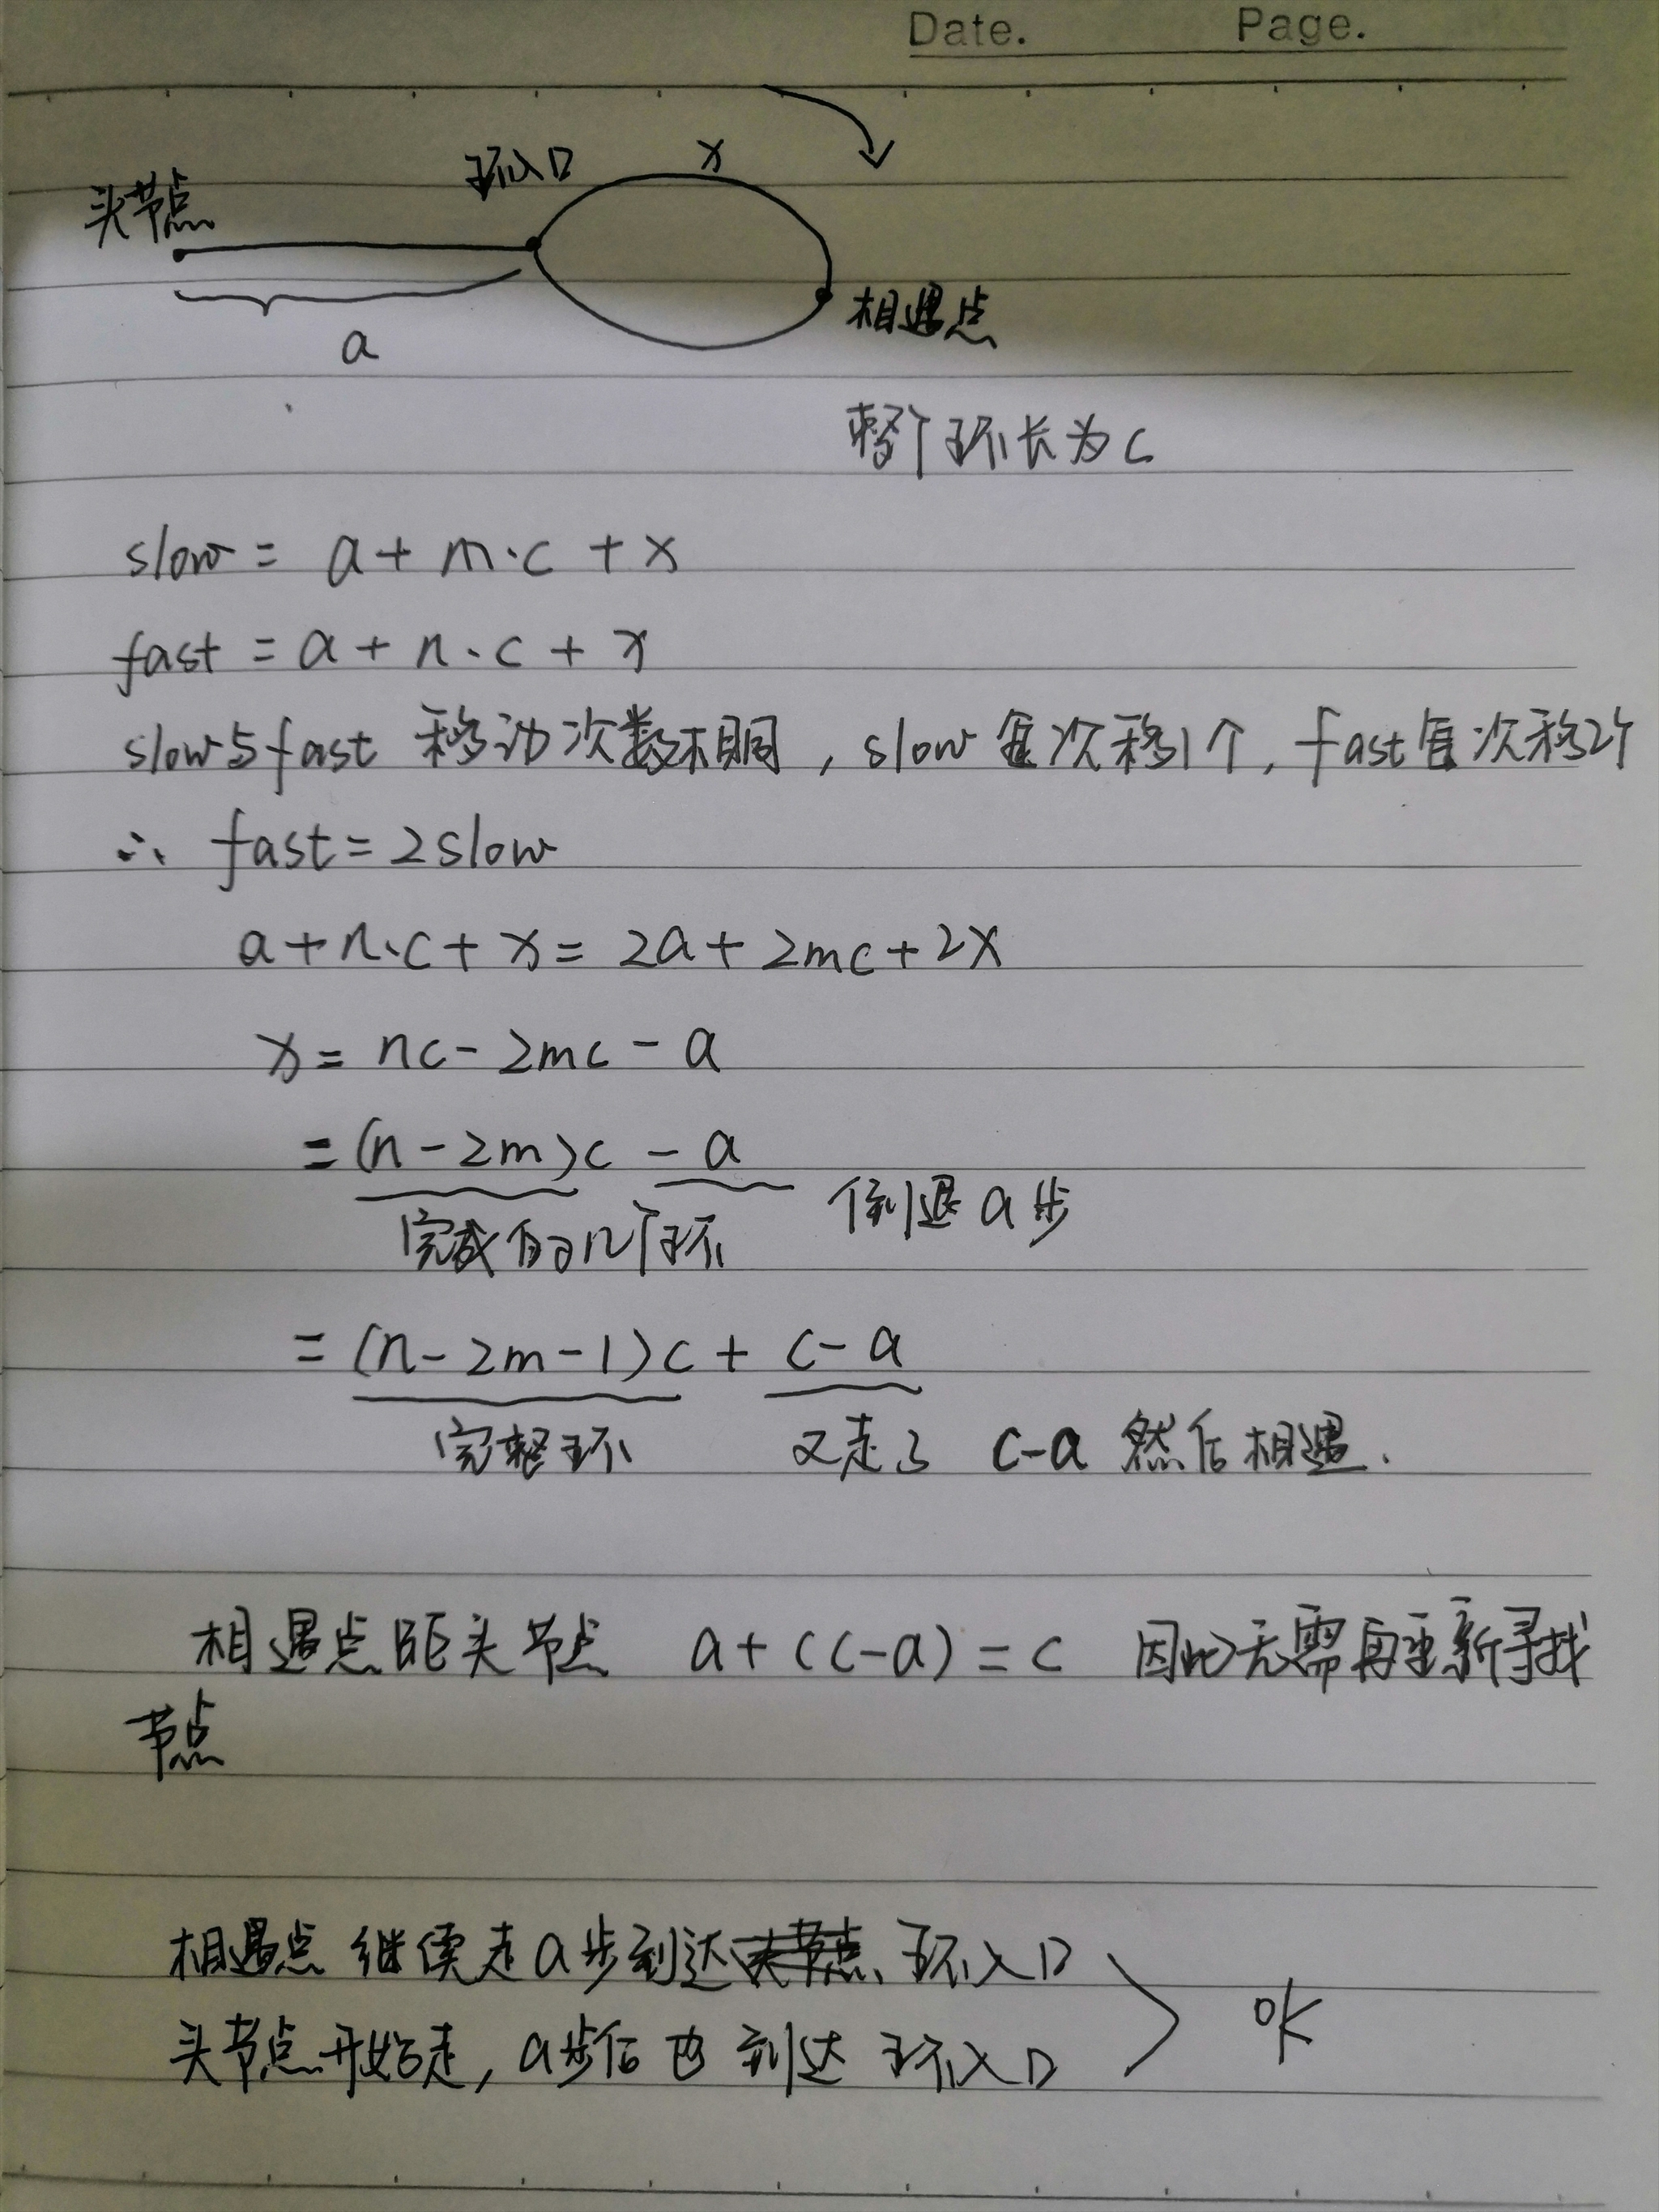 Date. Page.
x
环入口
头节点
相遇点
a
整个环长为c
slow = a + m·c + x
fast = a + n·c + x
slow与fast 移动次数相同，slow每次移1个，fast每次移2个
∴ fast = 2slow
a + n·c + x = 2a + 2mc + 2x
x = nc - 2mc - a
= (n - 2m)c - a
完成的几个环 倒退a步
= (n - 2m - 1)c + c - a
完整环 又走了 c-a 然后相遇.
相遇点距头节点 a + (c-a) = c 因此无需再重新寻找
节点
相遇点 继续走a步到达头节点、环入口
头节点开始走, a步后也到达 环入口
OK